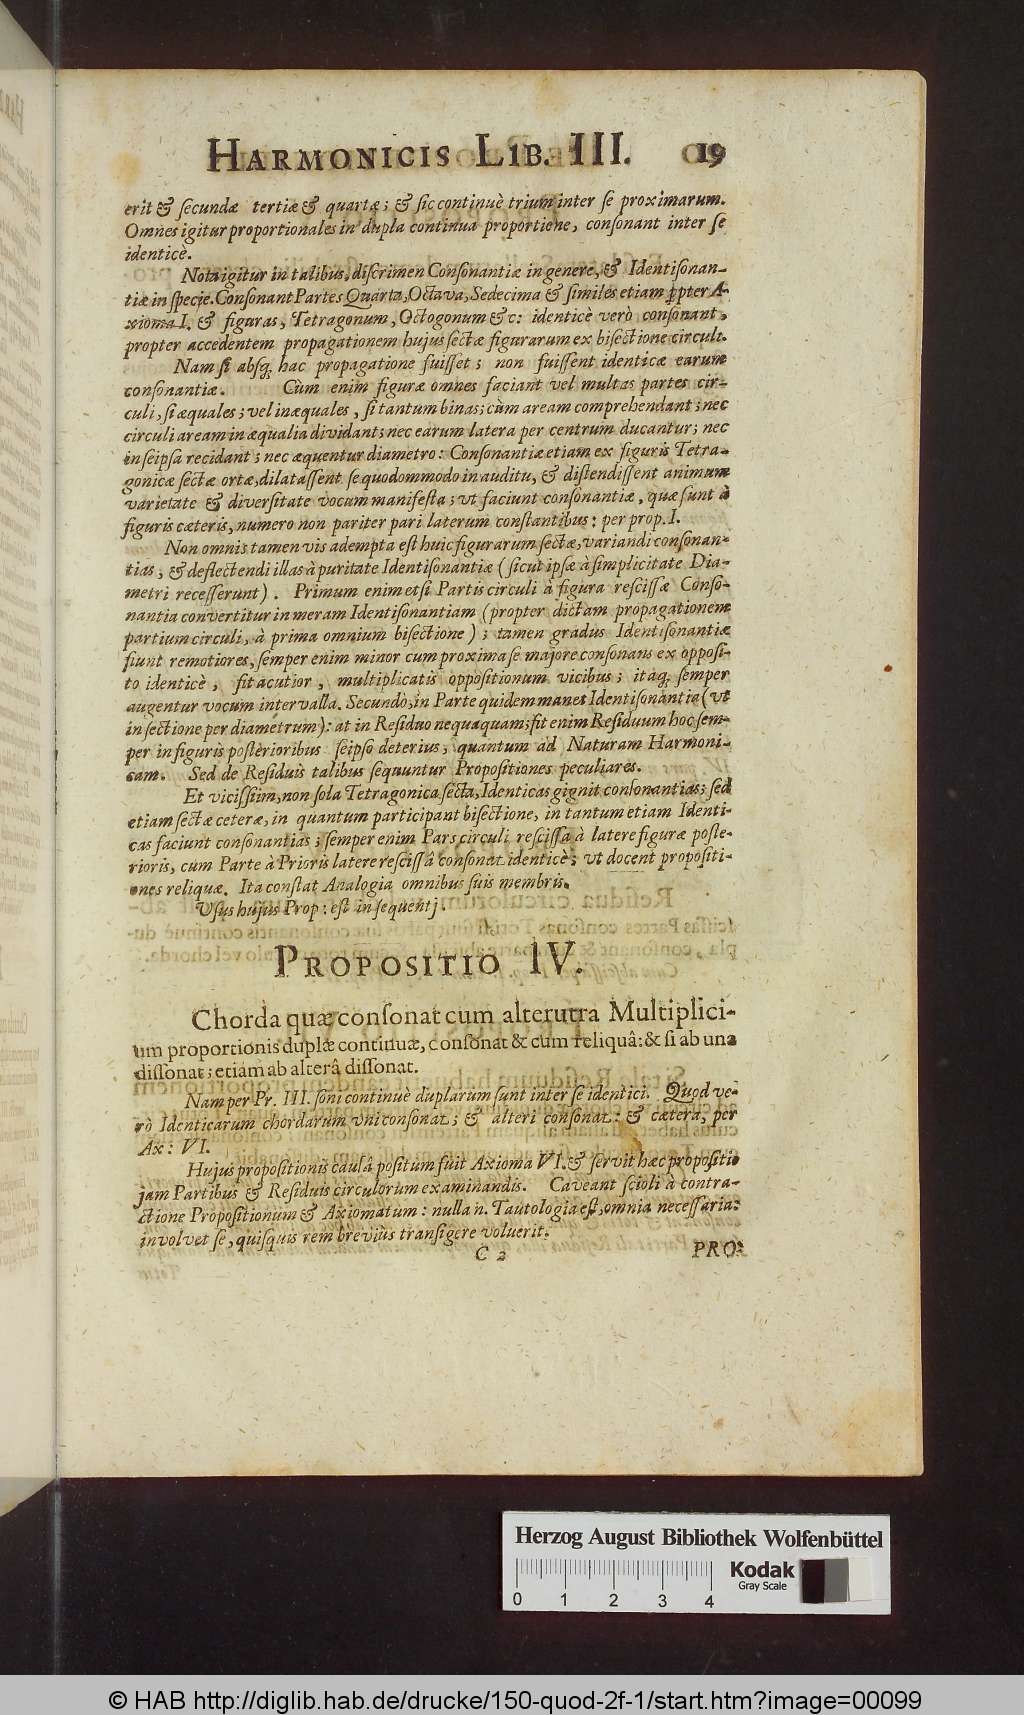 HARMONICIS LIB. III. 19
erit & ſecundæ tertiæ & quartæ; & ſic continuè trium inter ſe proximarum.
Omnes igitur proportionales in dupla continua proportione, conſonant inter ſe
identicè.
Nota igitur in talibus, diſcrimen Conſonantiæ in genere, & Identiſonan-
tiæ in ſpecie. Conſonant Partes Quarta, Octava, Sedecima & ſimiles etiam ꝓpter A-
xioma I. & figuras, Tetragonum, Octogonum & c: identicè verò conſonant,
propter accedentem propagationem hujus ſectæ figurarum ex biſectione circuli.
Nam ſi abſq; hac propagatione fuiſſet; non fuiſſent identicæ earum
conſonantiæ. Cùm enim figuræ omnes faciant vel multas partes cir-
culi, ſi æquales; vel inæquales, ſi tantum binas; cùm aream comprehendant; nec
circuli aream in æqualia dividant; nec earum latera per centrum ducantur; nec
in ſeipſa recidant; nec æquentur diametro: Conſonantiæ etiam ex figuris Tetra-
gonicæ ſectæ ortæ, dilataſſent ſe quodommodo in auditu, & diſtendiſſent animum
varietate & diverſitate vocum manifeſta; vt faciunt conſonantiæ, quæ ſunt à
figuris cæteris, numero non pariter pari laterum conſtantibus: per prop. I.
Non omnis tamen vis adempta eſt huic figurarum ſectæ, variandi conſonan-
tias, & deflectendi illas à puritate Identiſonantiæ (ſicut ipſæ à ſimplicitate Dia-
metri receſſerunt). Primum enim etſi Partis circuli à figura reſciſſæ Conſo-
nantia convertitur in meram Identiſonantiam (propter dictam propagationem
partium circuli, à prima omnium biſectione); tamen gradus Identiſonantiæ
fiunt remotiores, ſemper enim minor cum proxima ſe majore conſonans ex oppoſi-
to identicè, fit acutior, multiplicatis oppoſitionum vicibus; itaq; ſemper
augentur vocum intervalla. Secundò, in Parte quidem manet Identiſonantia (vt
in ſectione per diametrum): at in Reſiduo nequaquam; fit enim Reſiduum hoc ſem-
per in figuris poſterioribus ſeipſo deterius, quantum ad Naturam Harmoni-
cam. Sed de Reſiduis talibus ſequuntur Propoſitiones peculiares.
Et viciſſim, non ſola Tetragonica ſecta, Identicas gignit conſonantias; ſed
etiam ſectæ ceteræ, in quantum participant biſectione, in tantum etiam Identi-
cas faciunt conſonantias; ſemper enim Pars circuli reſciſſa à latere figuræ poſte-
rioris, cum Parte à Prioris latere reſciſſâ conſonat identicè; vt docent propoſiti-
ones reliquæ. Ita conſtat Analogia omnibus ſuis membris.
Vſus hujus Prop: eſt in ſequentj.
PROPOSITIO IV.
Chorda quæ conſonat cum alterutra Multiplici-
um proportionis duplæ continuæ, conſonat & cum reliquâ: & ſi ab una
diſſonat; etiam ab alterâ diſſonat.
Nam per Pr. III. ſoni continuè duplarum ſunt inter ſe identici. Quod ve-
rò Identicarum chordarum vni conſonat; & alteri conſonat: & cætera, per
Ax: VI.
Hujus propoſitionis cauſâ poſitum fuit Axioma VI. & ſervit hæc propoſitio
jam Partibus & Reſiduis circulorum examinandis. Caveant ſcioli à contra-
ctione Propoſitionum & Axiomatum: nulla n. Tautologia eſt, omnia neceſſaria:
involvet ſe, quiſquis rem breviùs tranſigere voluerit.
C 2 PRO-
Herzog August Bibliothek Wolfenbüttel
Kodak
Gray Scale
0 1 2 3 4
© HAB http://diglib.hab.de/drucke/150-quod-2f-1/start.htm?image=00099